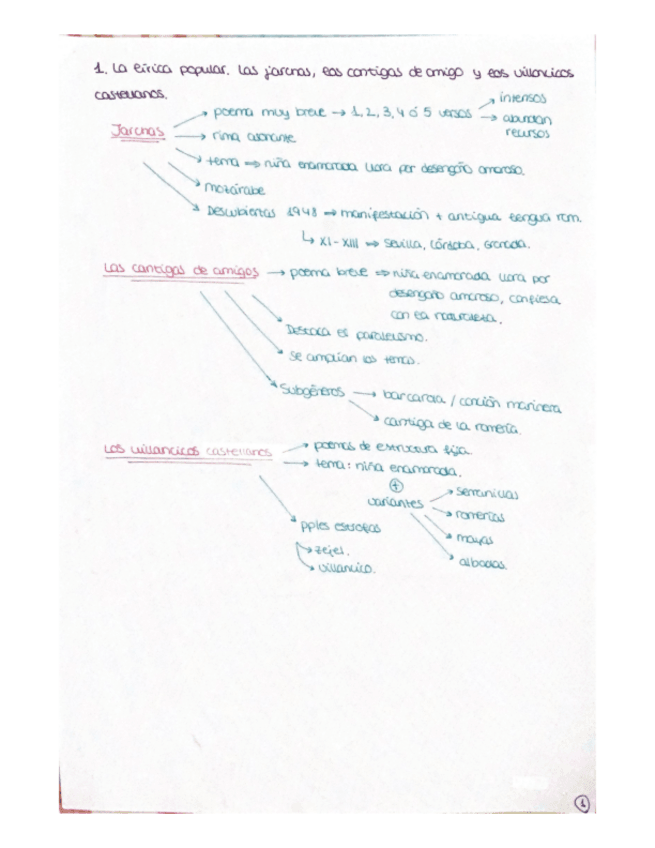 1. La lírica popular. Las jarchas, las cantigas de amigo y los villancicos
castellanos.
Jarchas
poema muy breve → 1, 2, 3, 4 ó 5 versos
→ intensos
→ abundan
recursos
→ rima asonante
→ tema ⇒ niña enamorada llora por desengaño amoroso.
mozárabe
Descubiertas 1948 ⇒ manifestación + antigua lengua rom.
↳ XI-XIII ⇒ Sevilla, Córdoba, Granada.
Las cantigas de amigos → poema breve ⇒ niña enamorada llora por
desengaño amoroso, confiesa
con la naturaleza.
Destaca el paralelismo.
Se amplían los temas.
Subgéneros → barcarola / canción marinera
→ cantiga de la romería.
Los villancicos castellanos → poemas de estructura fija.
→ tema: niña enamorada.
+
variantes → serranillas
→ romerías
→ mayas
→ albadas.
pples estrofas
→ zéjel.
→ villancico.
1